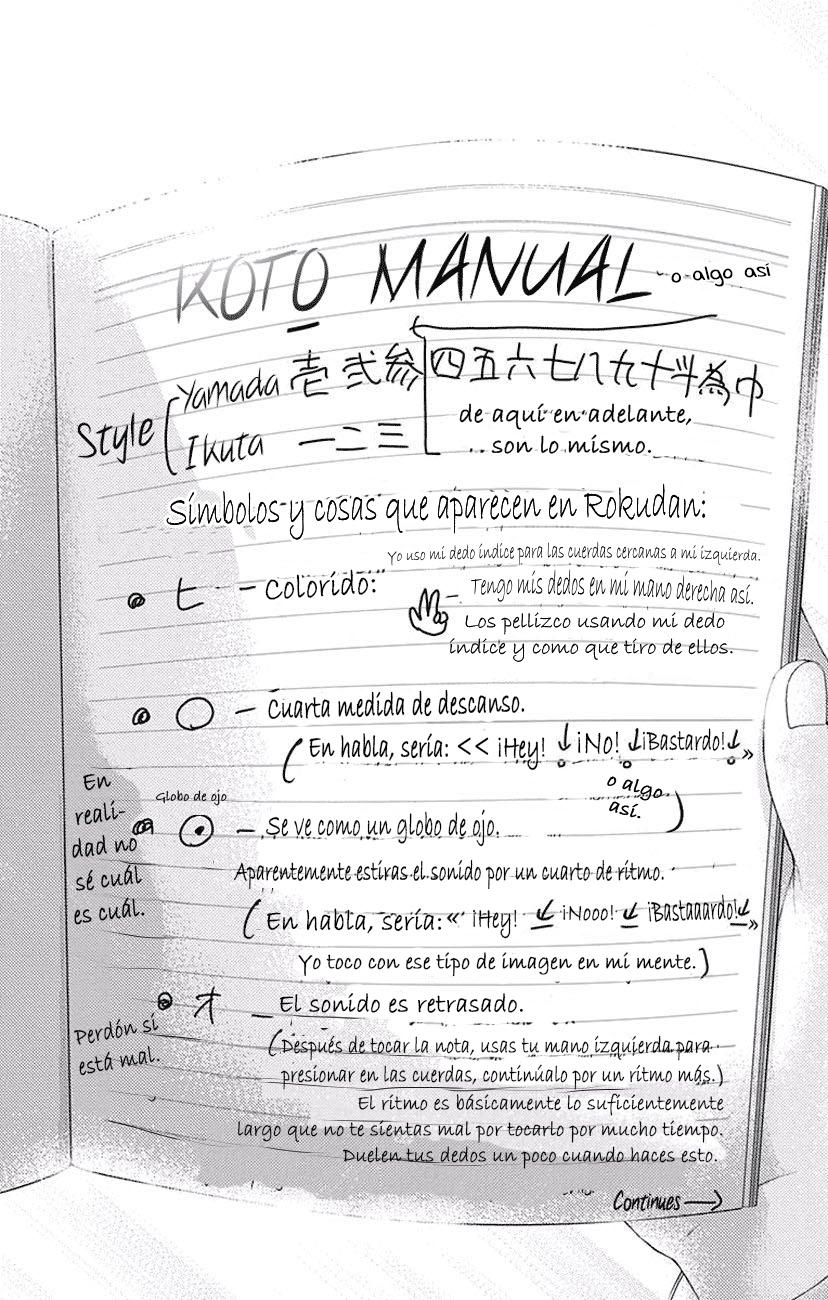 KOTO MANUAL
o algo así
Style
Yamada 壱 弐 参 四五六七八九十斗為巾
Ikuta 一二三
de aquí en adelante,
son lo mismo.
Símbolos y cosas que aparecen en Rokudan:
Yo uso mi dedo índice para las cuerdas cercanas a mi izquierda.
ヒ – Colorido:
– Tengo mis dedos en mi mano derecha así.
Los pellizco usando mi dedo
índice y como que tiro de ellos.
○ – Cuarta medida de descanso.
(En habla, sería: << ¡Hey! ↓ ¡No! ↓ ¡Bastardo! ↓ »
o algo
así.)
En
reali-
dad no
sé cuál
es cuál.
Globo de ojo
– Se ve como un globo de ojo.
Aparentemente estiras el sonido por un cuarto de ritmo.
(En habla, sería: « ¡Hey! ↙ ¡Nooo! ↙ ¡Bastaaardo! ↙ »
Yo toco con ese tipo de imagen en mi mente.)
オ – El sonido es retrasado.
Perdón si
está mal.
(Después de tocar la nota, usas tu mano izquierda para
presionar en las cuerdas, continúalo por un ritmo más.)
El ritmo es básicamente lo suficientemente
largo que no te sientas mal por tocarlo por mucho tiempo.
Duelen tus dedos un poco cuando haces esto.
Continues →